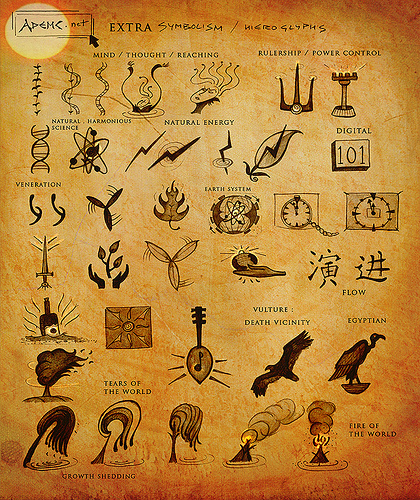 ADEMC.net
EXTRA SYMBOLISM / HIEROGLYPHS
MIND / THOUGHT / REACHING
RULERSHIP / POWER CONTROL
NATURAL . HARMONIOUS
SCIENCE
NATURAL ENERGY
DIGITAL
101
VENERATION
EARTH SYSTEM
演 进
FLOW
VULTURE :
DEATH VICINITY
EGYPTIAN
TEARS OF
THE WORLD
FIRE OF
THE WORLD
GROWTH SHEDDING